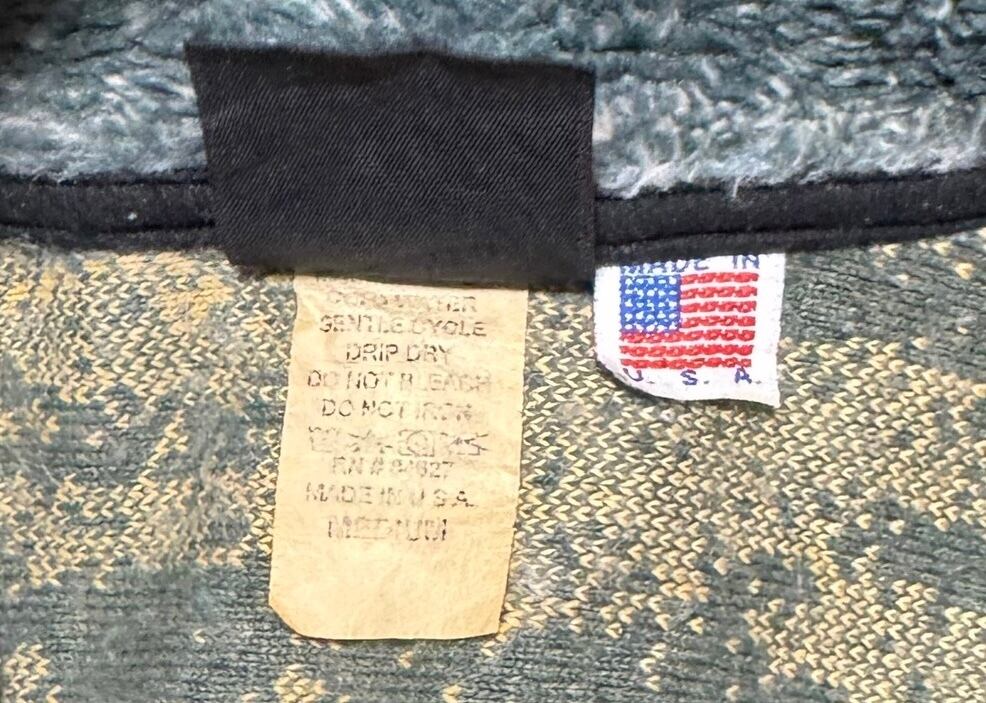 GENTLE CYCLE
DRIP DRY
DO NOT BLEACH
DO NOT IRON
RN #
MADE IN U S A
MEDIUM
MADE IN
U. S. A.